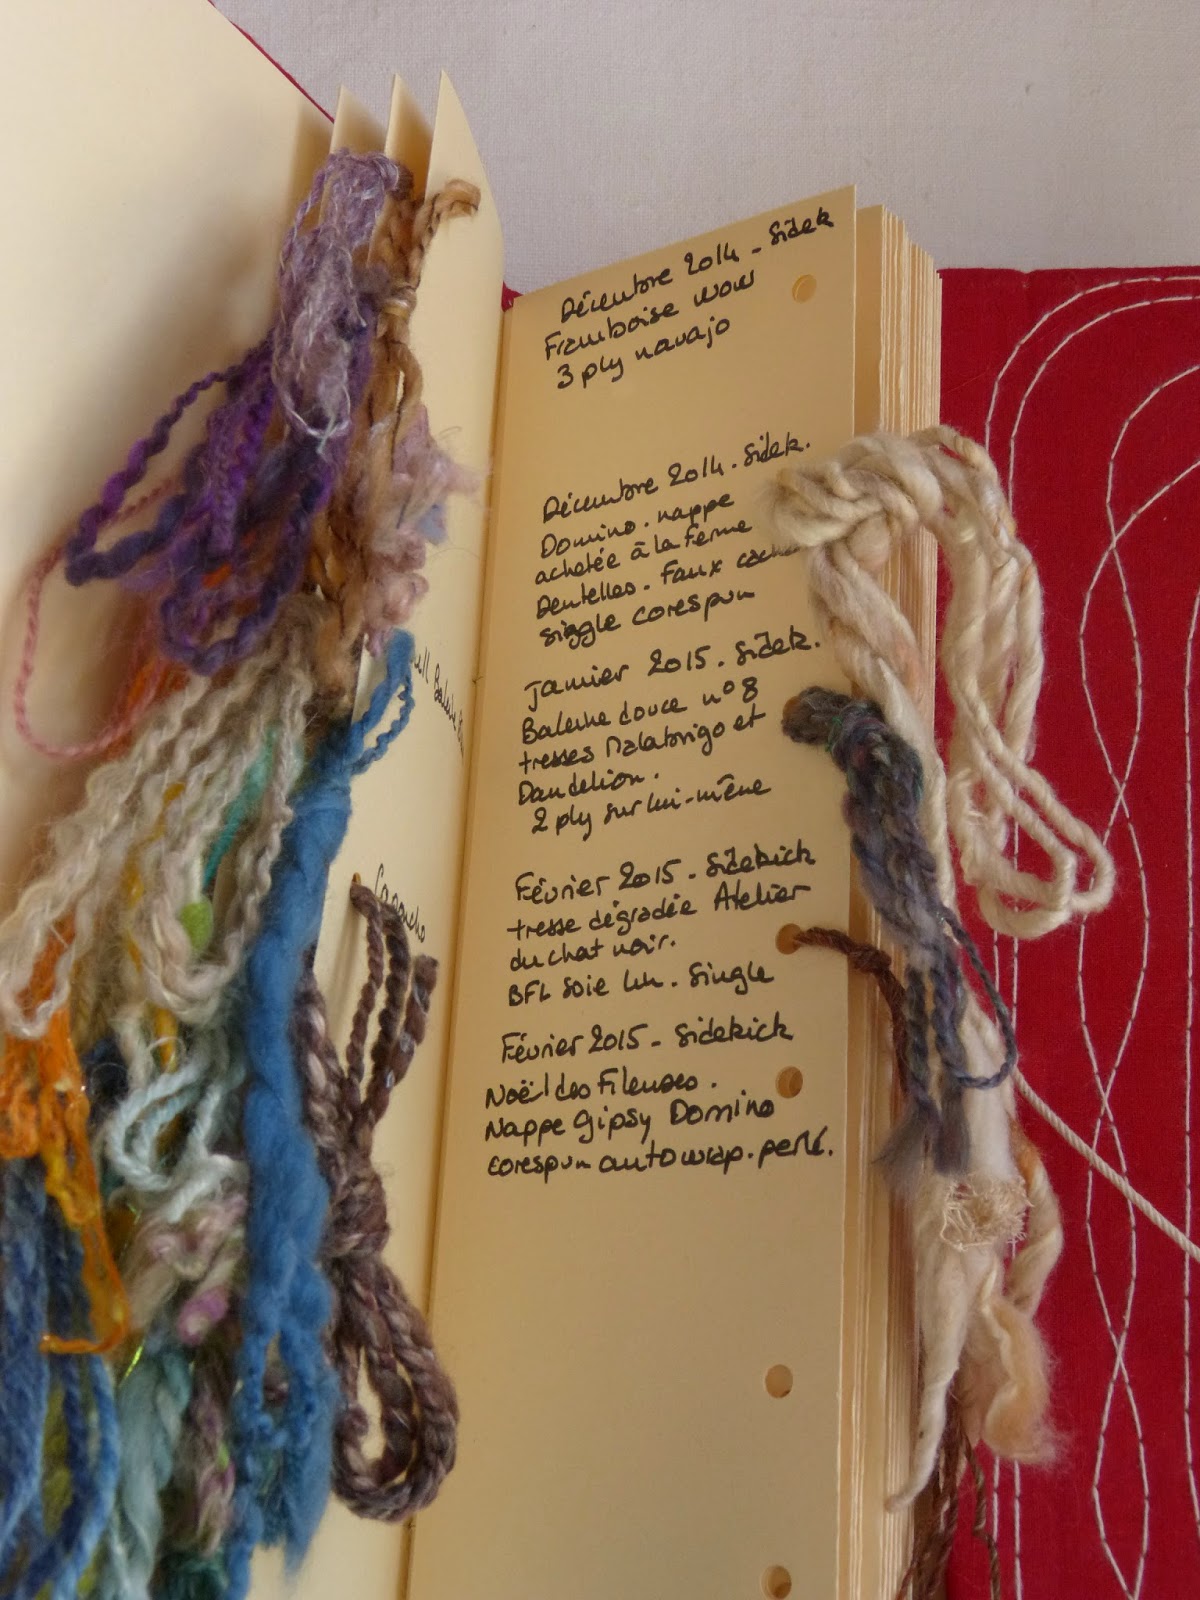 Décembre 2014 - Sidek
Framboise wow
3 ply navajo
Décembre 2014. Sidek.
Domino. nappe
achetée à la Ferme
Dentelles. Faux
single corespun
Janvier 2015. Sidek.
Baleine douce n° 8
tresses Malabrigo et
Dandelion.
2 ply sur lui-même
Février 2015. Sidekick
tresse dégradée Atelier
du chat noir.
BFL Soie. Single
Février 2015 - Sidekick
Noël des Fileuses.
Nappe Gipsy Domino
corespun autowrap. perlé.